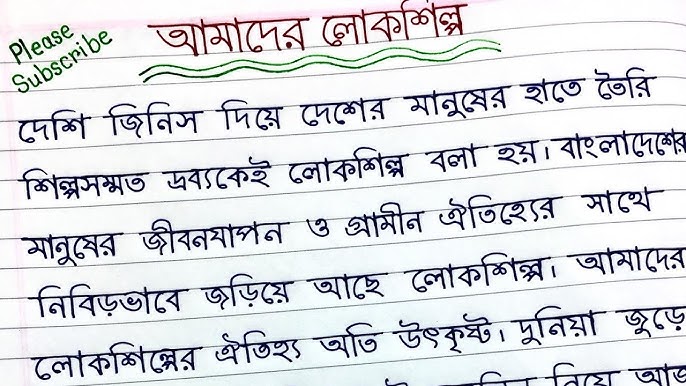 Please
Subscribe
আমাদের লোকশিল্প
দেশি জিনিস দিয়ে দেশের মানুষের হাতে তৈরি
শিল্পসম্মত দ্রব্যকেই লোকশিল্প বলা হয়। বাংলাদেশের
মানুষের জীবনযাপন ও গ্রামীন ঐতিহ্যের সাথে
নিবিড়ভাবে জড়িয়ে আছে লোকশিল্প। আমাদের
লোকশিল্পের ঐতিহ্য অতি উৎকৃষ্ট। দুনিয়া জুড়ে
নিয়ে আজ